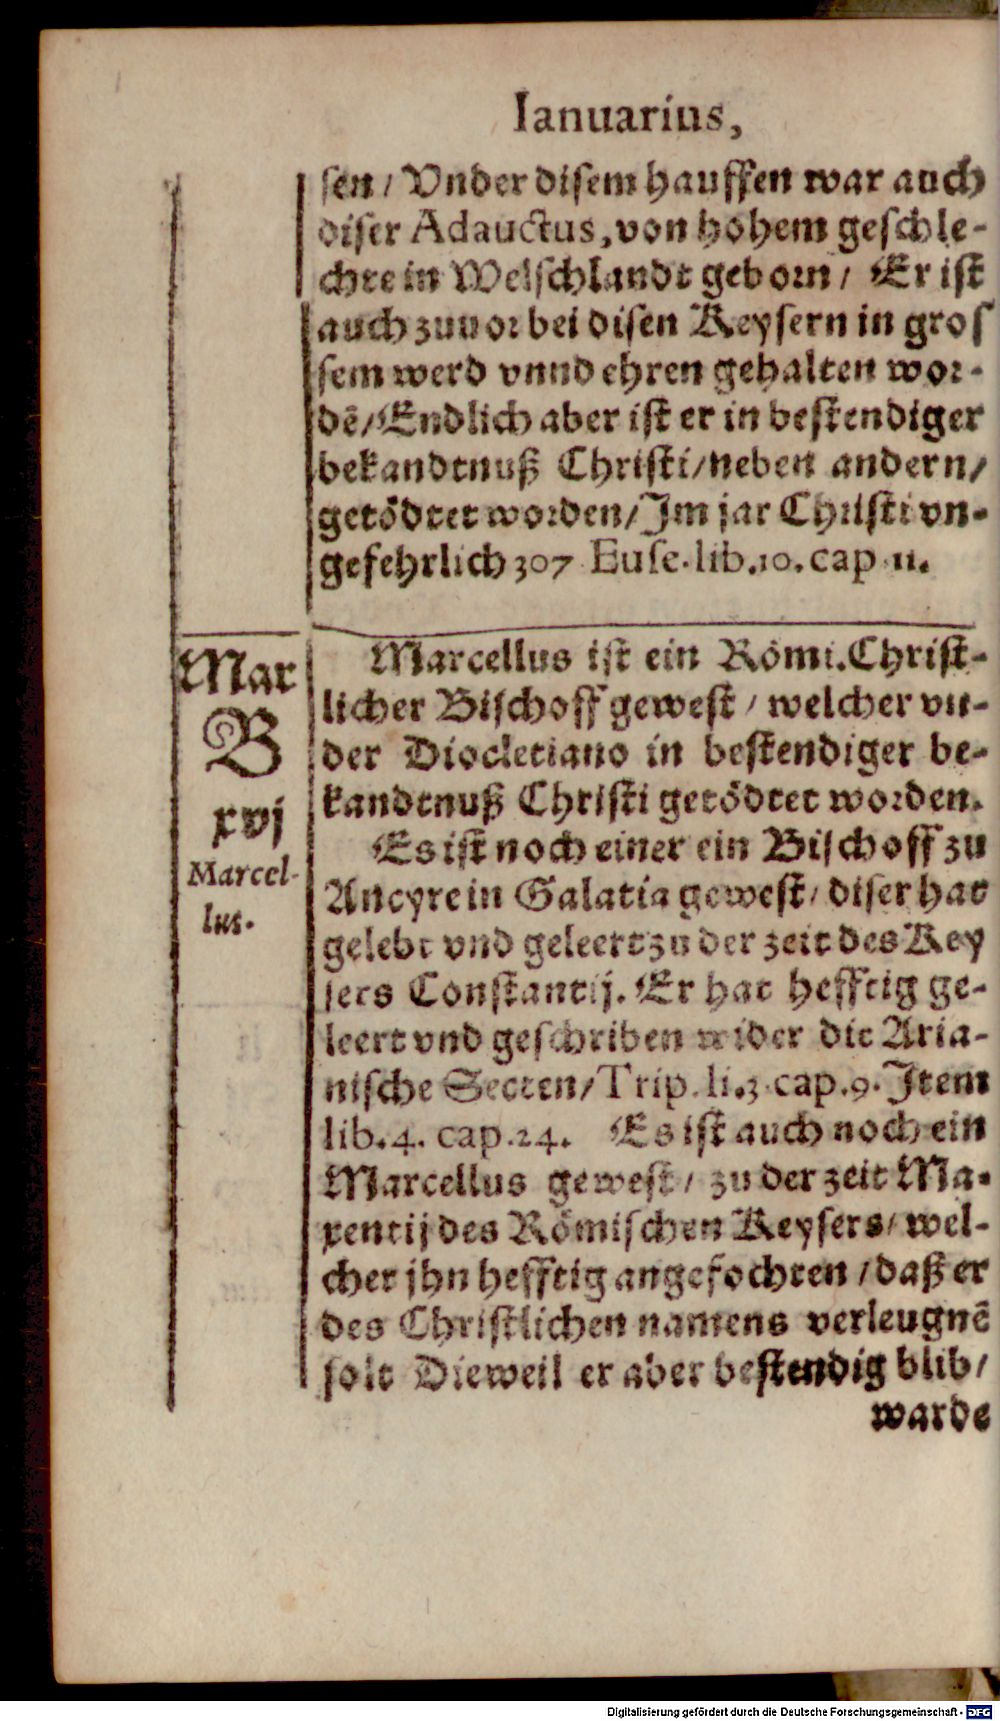 Ianuarius,
sen / Vnder disem hauffen war auch
diser Adauctus, von hohem geschle-
chte in Welschlandt geborn / Er ist
auch zuuor bei disen Keysern in gros
sem werd vnnd ehren gehalten wor-
dē / Endlich aber ist er in bestendiger
bekandtnuß Christi / neben andern /
getödtet worden / Im jar Christi vn-
gefehrlich 307 Euse. lib. 10. cap 11.
Mar
B
xvj
Marcel-
lus.
Marcellus ist ein Römi. Christ-
licher Bischoff gewest / welcher vn-
der Diocletiano in bestendiger be-
kandtnuß Christi getödtet worden.
Es ist noch einer ein Bischoff zu
Ancyre in Galatia gewest / diser hat
gelebt vnd geleert zu der zeit des Key
sers Constantij. Er hat hefftig ge-
leert vnd geschriben wider die Aria-
nische Secten / Trip. li. 3. cap. 9. Item
lib. 4. cap. 24. Es ist auch noch ein
Marcellus gewest / zu der zeit Ma-
xentij des Römischen Keysers / wel-
cher jhn hefftig angefochten / daß er
des Christlichen namens verleugnē
solt Dieweil er aber bestendig blib /
warde
Digitalisierung gefördert durch die Deutsche Forschungsgemeinschaft - DFG